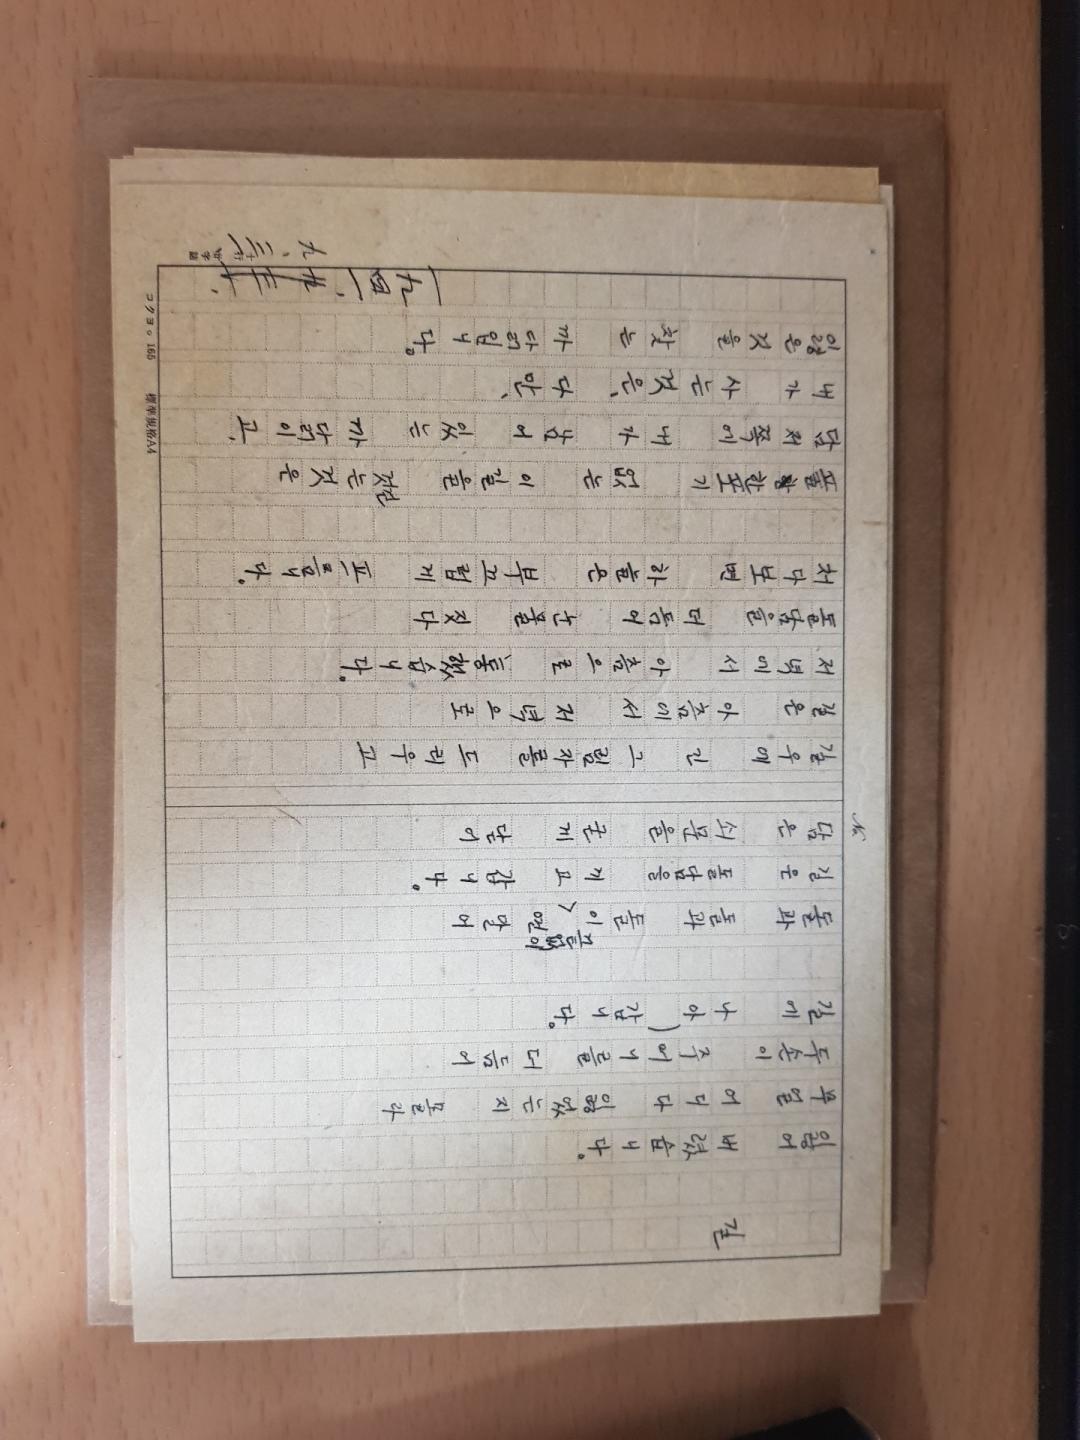 길
잃어 버렸습니다.
무얼 어디다 잃었는지 몰라
두손이 주머니를 더듬어
길에 나아갑니다.
돌과 돌과 돌이 끝없이 연달어
길은 돌담을 끼고 갑니다.
담은 쇠문을 굳게 닫어
길우에 긴 그림자를 드리우고
길은 아츰에서 저녁으로
저녁에서 아츰으로 통했습니다.
돌담을 더듬어 눈물 짓다
처다보면 하늘은 부끄럽게 프릅니다.
풀 한포기 없는 이길을 걷는것은
담저쪽에 내가 남어 있는 까닭이고,
내가 사는것은, 다만,
잃은것을 찾는 까닭입니다.
一九四一、
九、三十一
コクヨ。165 標準規格A4